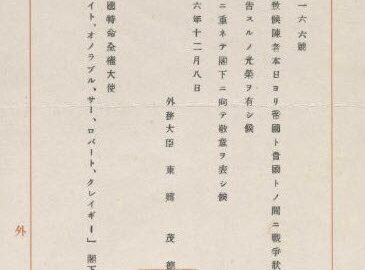 一六六號
敬候陳者本日ヨリ帝國ト貴國トノ間ニ戰爭狀
告スルノ光榮ヲ有シ候
ニ重ネテ閣下ニ向テ敬意ヲ表シ候
六年十二月八日
外務大臣 東鄕茂德
國特命全權大使
イト、オノラブル、サー、ロバート、クレイギー」閣下
外